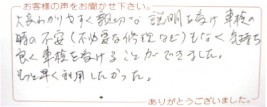 お客様の声をお聞かせ下さい。
大変わかりやすく親切に説明を受け車検の
時の不安(不必要な修理など)もなく気持ち
良く車検を受けることができました。
もっと早く利用したかった。
ありがとうございました。